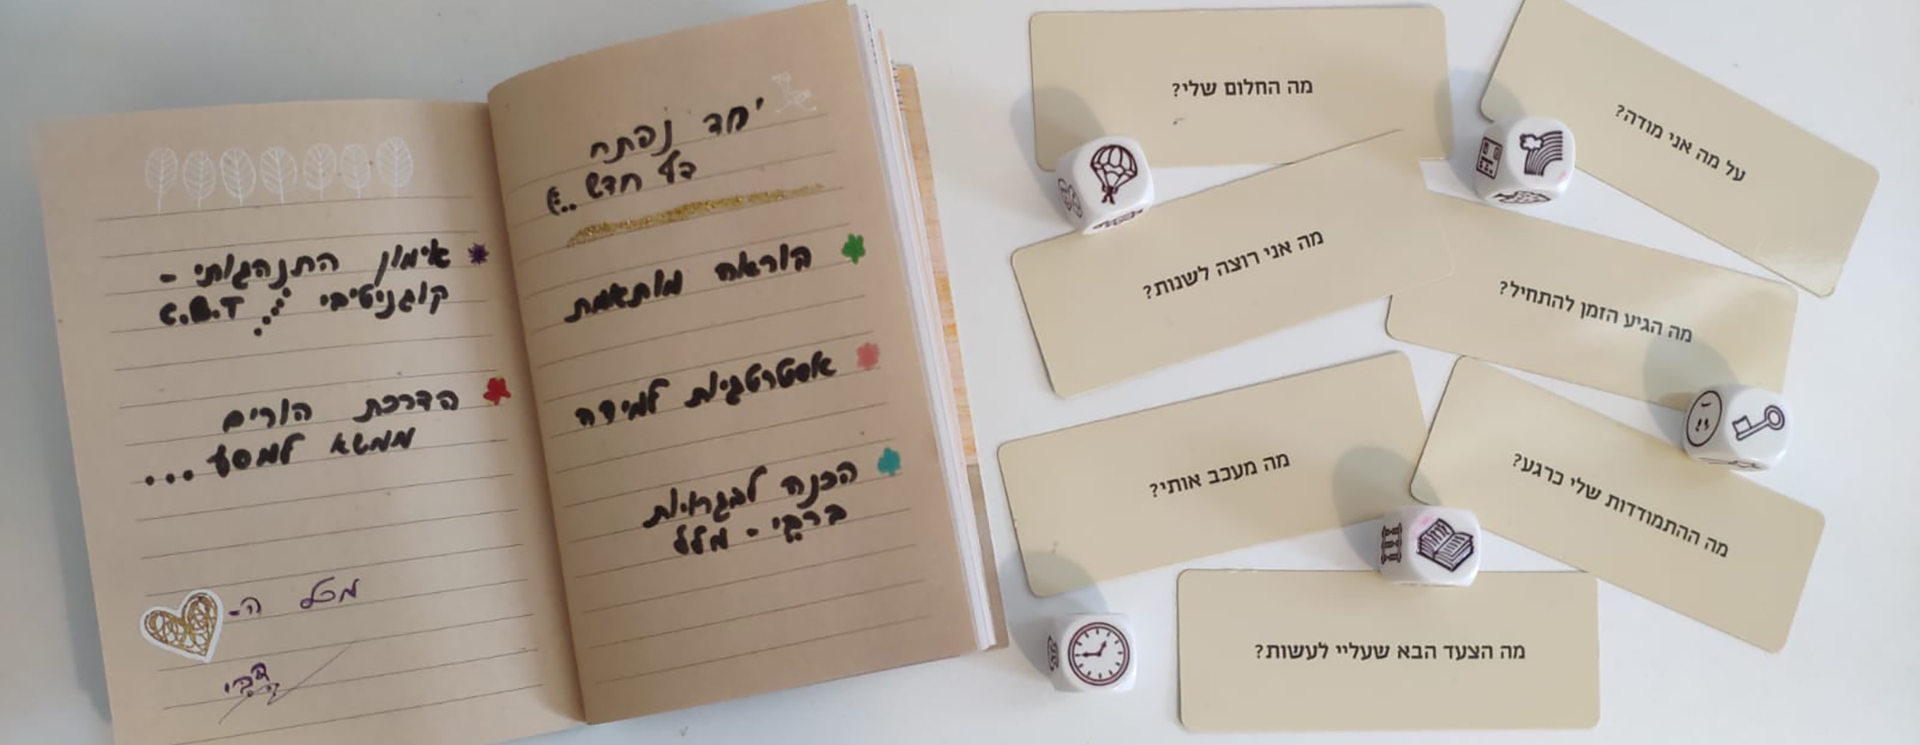 יחד נפתח
דף חדש ..
הוראה מותאמת
אסטרטגיות למידה
הכנה לבגרויות
ברבי - מלל
אימון התנהגותי -
קוגניטיבי C.B.T
הדרכת הורים
ממשא למסע ...
מכל ה-
מה החלום שלי?
על מה אני מודה?
מה אני רוצה לשנות?
מה הגיע הזמן להתחיל?
מה מעכב אותי?
מה ההתמודדות שלי כרגע?
מה הצעד הבא שעליי לעשות?